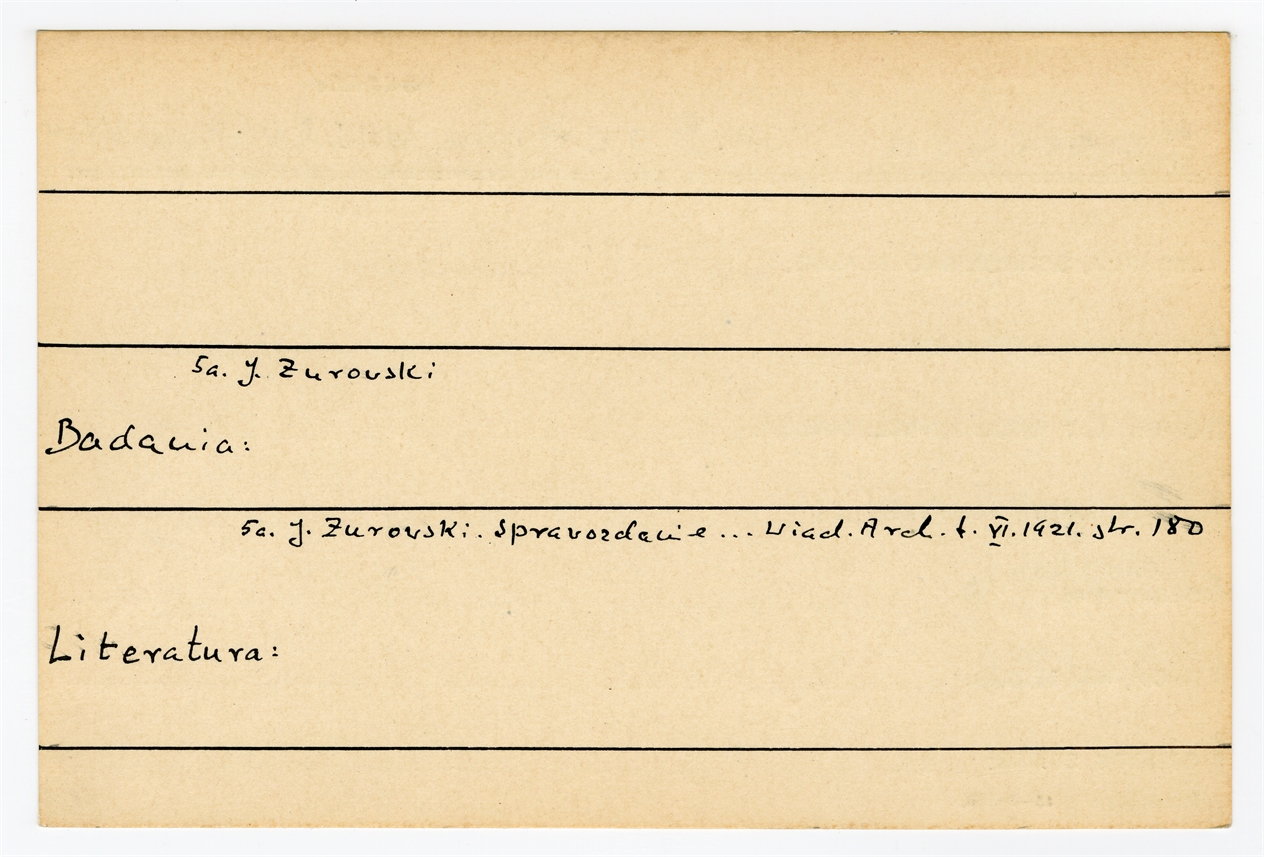 5a. J. Żurowski
Badania:
5a. J. Żurowski. Sprawozdanie ... Wiad. Arch. t. VI. 1921. str. 180
Literatura: